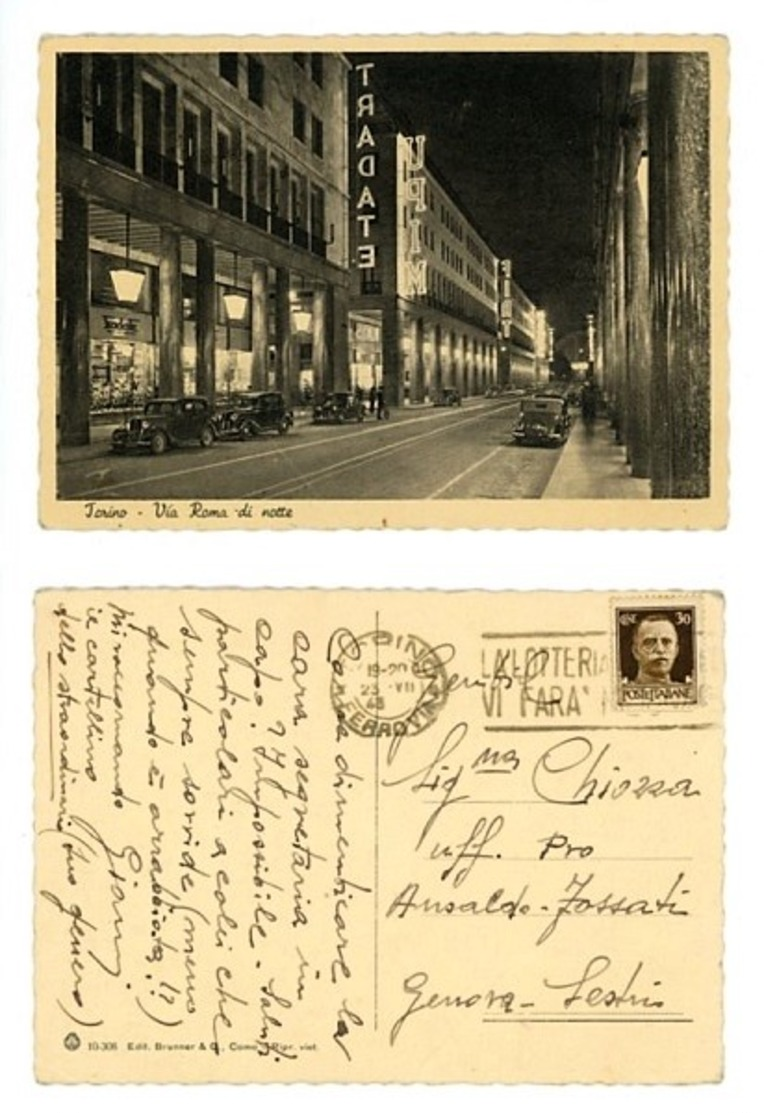 TRADATE
UPIM
Tradate
Torino - Via Roma di notte
Come dimenticare la
cara segretaria in
capo? Impossibile. Saluti
particolari a colei che
sempre sorride (meno
quando è arrabbiata!?)
Gianni
mi raccomando
il cartellino
dello straordinario (tuo genero)
TORINO
19-20
23 VII
43
FERROVIA
LA LOTTERIA
VI FARA'
CENT. 30
POSTE ITALIANE
Gent.
Sig.na Chiozza
uff. Pro
Ansaldo-Fossati
Genova-Sestri
10-306 Edit. Brunner & C., Como Ripr. viet.